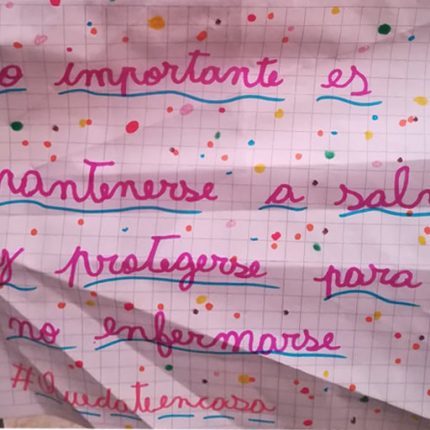 o importante es
mantenerse a salv
y protegerse para
no enfermarse
#Quedateencasa